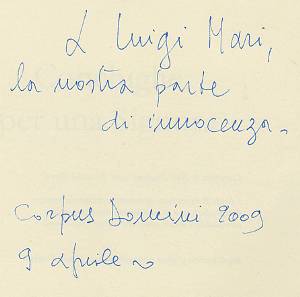 A Luigi Mari,
la nostra parte
di innocenza.
Corpus Domini 2009
9 aprile